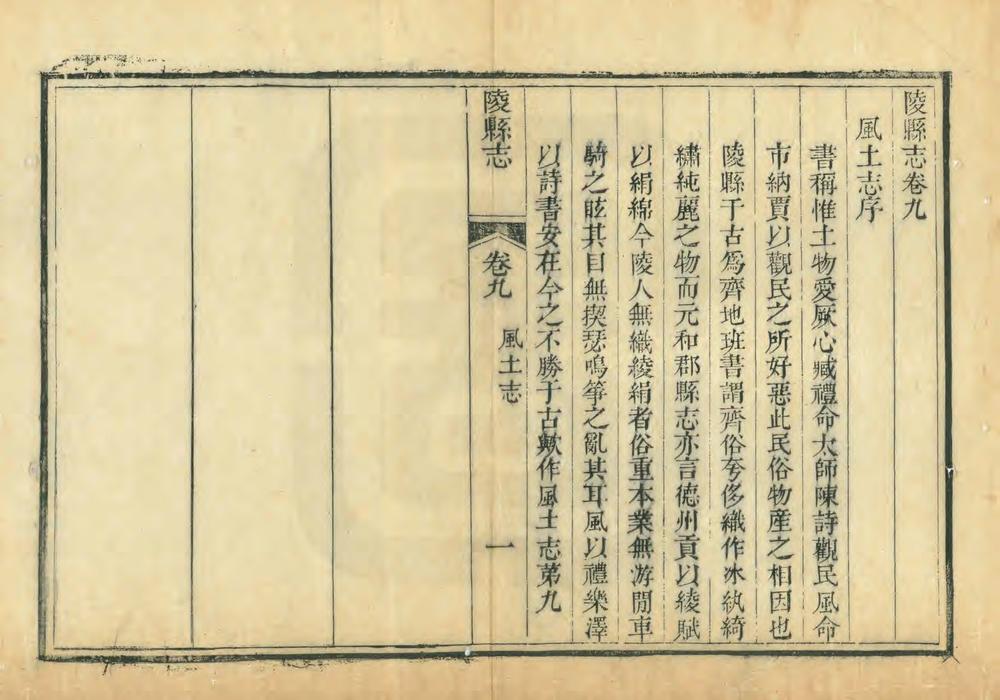 陵縣志卷九
風土志序
書稱惟土物愛厥心臧禮命太師陳詩觀民風命
市納賈以觀民之所好惡此民俗物產之相因也
陵縣于古爲齊地班書謂齊俗夸侈織作冰紈綺
繡純麗之物而元和郡縣志亦言德州貢以綾賦
以絹綿今陵人無織綾絹者俗重本業無游閒車
騎之眩其目無揳瑟鳴箏之亂其耳風以禮樂澤
以詩書安在今之不勝于古歟作風土志第九
陵縣志
卷九
風土志
一